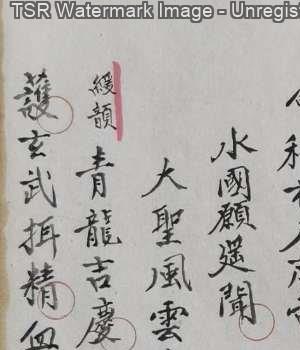 TSR Watermark Image - Unregis
水國願遥聞
大聖風雲
緩韻
青龍吉慶
護玄武揖精